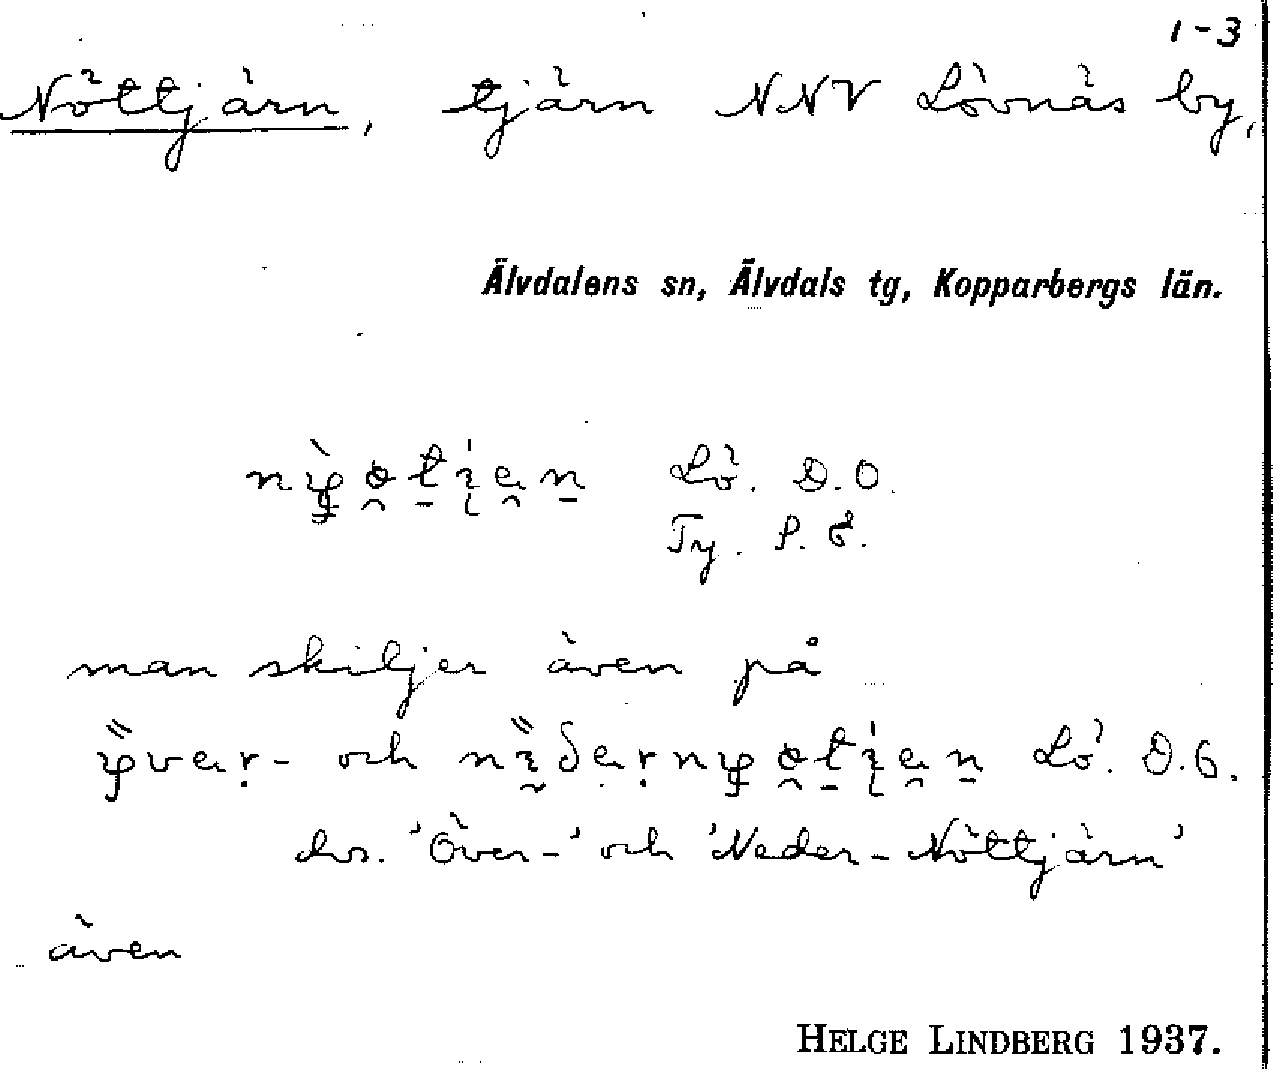 1-3
Nöttjärn, tjärn NNV Lövnäs by,
Älvdalens sn, Älvdals tg, Kopparbergs län.
Lö. D.O.
Ty. P. E.
man skiljer även på
och Lö. D.G.
dvs. 'Över-' och 'Neder-Nöttjärn'
även
HELGE LINDBERG 1937.